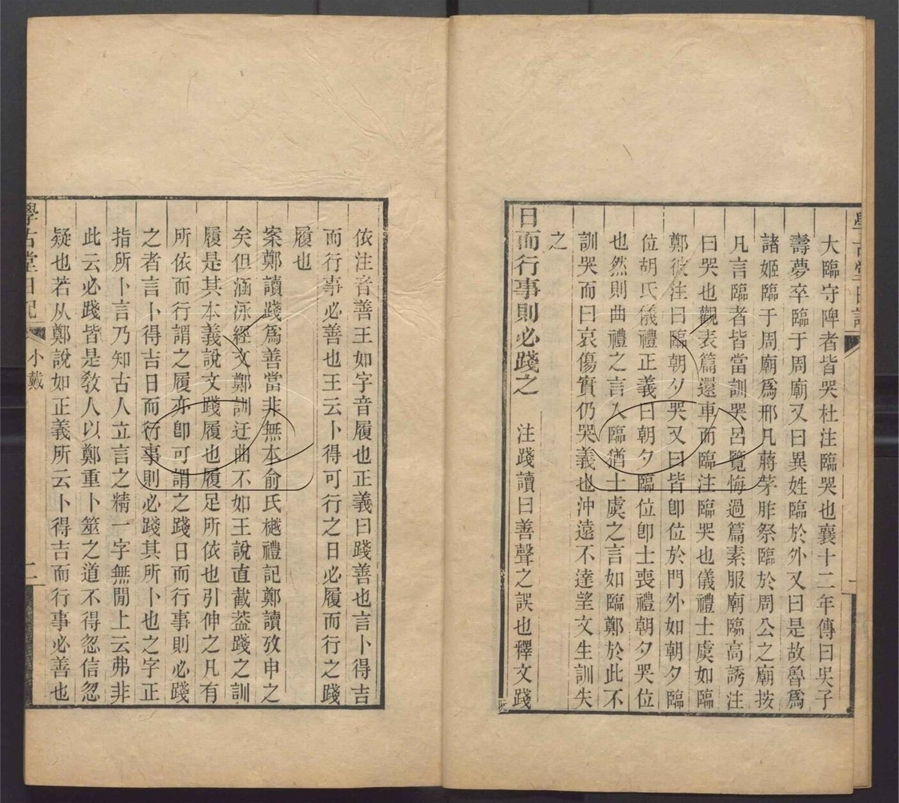 大臨守陴者皆哭杜注臨哭也襄十二年傳曰吳子
壽夢卒臨于周廟又曰異姓臨於外又曰是故魯爲
諸姬臨于周廟爲邢凡蔣茅胙祭臨於周公之廟按
凡言臨者皆當訓哭呂覽悔過篇素服廟臨高誘注
曰哭也觀表篇還車而臨注臨哭也儀禮士虞如臨
鄭彼注曰臨朝夕哭又曰皆卽位於門外如朝夕臨
位胡氏儀禮正義曰朝夕臨位卽士喪禮朝夕哭位
也然則曲禮之言入臨猶士虞之言如臨鄭於此不
訓哭而曰哀傷實仍哭義也沖遠不達望文生訓失
之
日而行事則必踐之 注踐讀曰善聲之誤也釋文踐
依注音善王如字音履也正義曰踐善也言卜得吉
而行事必善也王云卜得可行之日必履而行之踐
履也
案鄭讀踐爲善當非無本俞氏樾禮記鄭讀攷申之
矣但涵泳經文鄭訓迂曲不如王說直截葢踐之訓
履是其本義說文踐履也履足所依也引伸之凡有
所依而行謂之履亦卽可謂之踐日而行事則必踐
之者言卜得吉日而行事則必踐其所卜也之字正
指所卜言乃知古人立言之精一字無閒上云弗非
此云必踐皆是敎人以鄭重卜筮之道不得忽信忽
疑也若从鄭說如正義所云卜得吉而行事必善也
學古堂日記 小戴 二